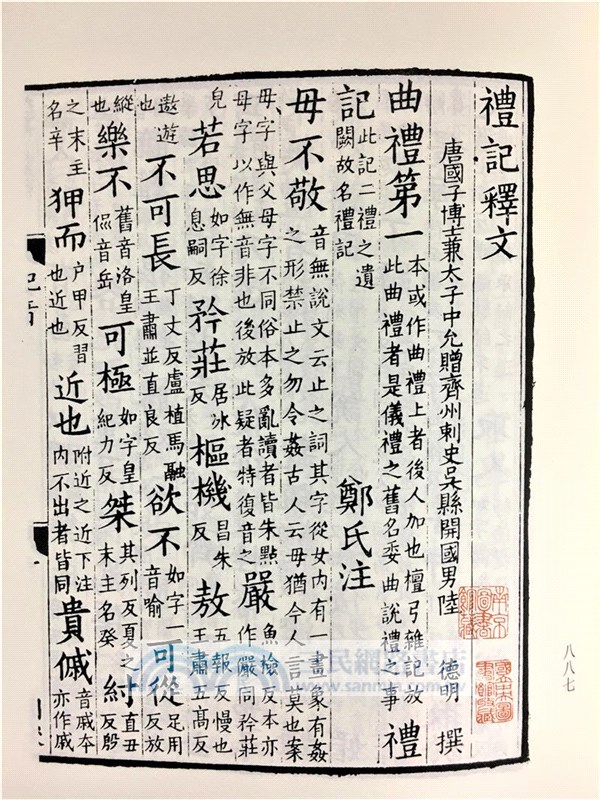 禮記釋文
唐國子博士兼太子中允贈齊州刺史吳縣開國男陸 德明 撰
曲禮第一 本或作曲禮上者後人加也檀弓雜記放此曲禮者是儀禮之舊名委曲說禮之事 禮
記 此記二禮之遺闕故名禮記 鄭氏注
毋不敬 音無說文云止之詞其字從女內有一畫象有姦之形禁止之勿令姦古人云毋猶今人言莫也案
毋字與父母字不同俗本多亂讀者皆朱點母字以作無音非也後放此疑者特復音之 嚴 魚檢反本亦作儼同矜莊
皃 若思 如字徐息嗣反 矜莊 居冰反 樞機 昌朱反 敖 五報反慢也王肅五高反
遨遊也 不可長 丁丈反盧植馬融王肅並直良反 欲不 如字一音喻 可從 足用反放
縱也 樂不 舊音洛皇侃音岳 可極 如字皇紀力反 桀 其列反夏之末主名癸 紂 直丑反殷
之末主名辛 狎而 戶甲反習也近也 近也 附近之近下注內不出者皆同 貴傶 音戚本亦作戚
八八七
三民網路書店
www.sanmin.com.tw